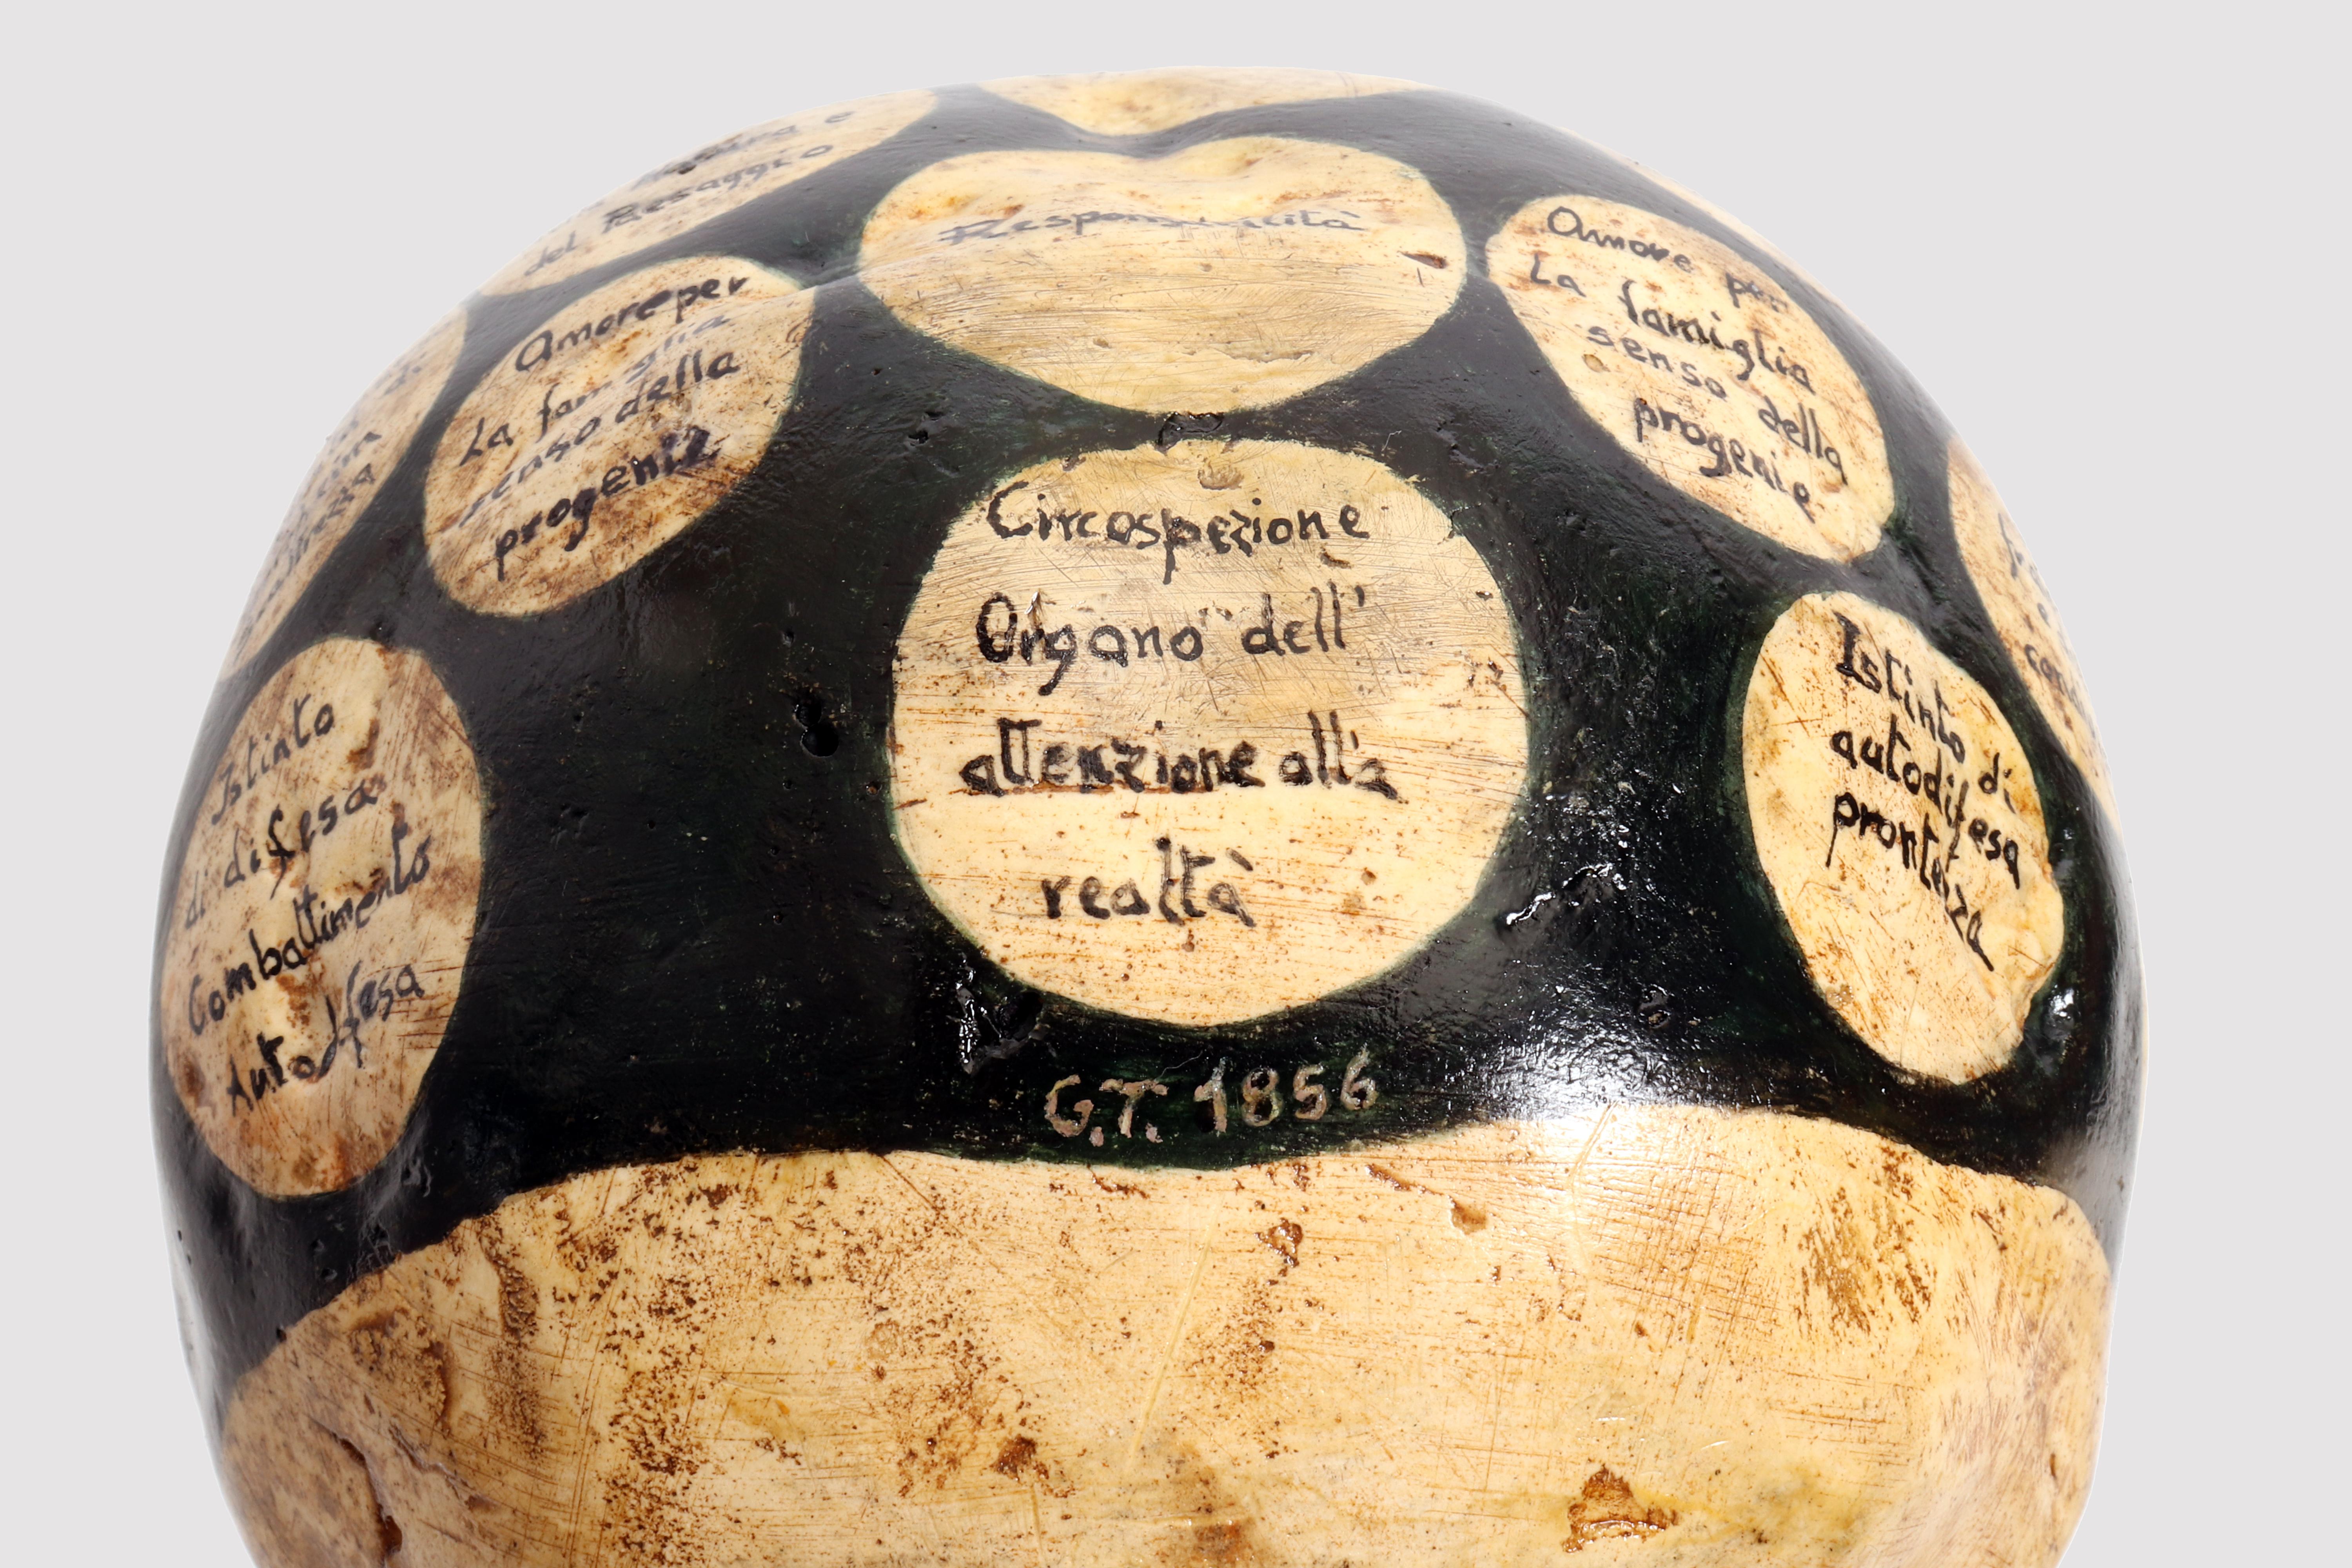 del Paesaggio
Responsabilità
Amore per
La famiglia
senso della
progenie
Amore per
La famiglia
senso della
progenie
Circospezione
Organo dell'
attenzione alla
realtà
Istinto
di difesa
Combattimento
Auto difesa
Istinto di
autodifesa
prontezza
G.T. 1856